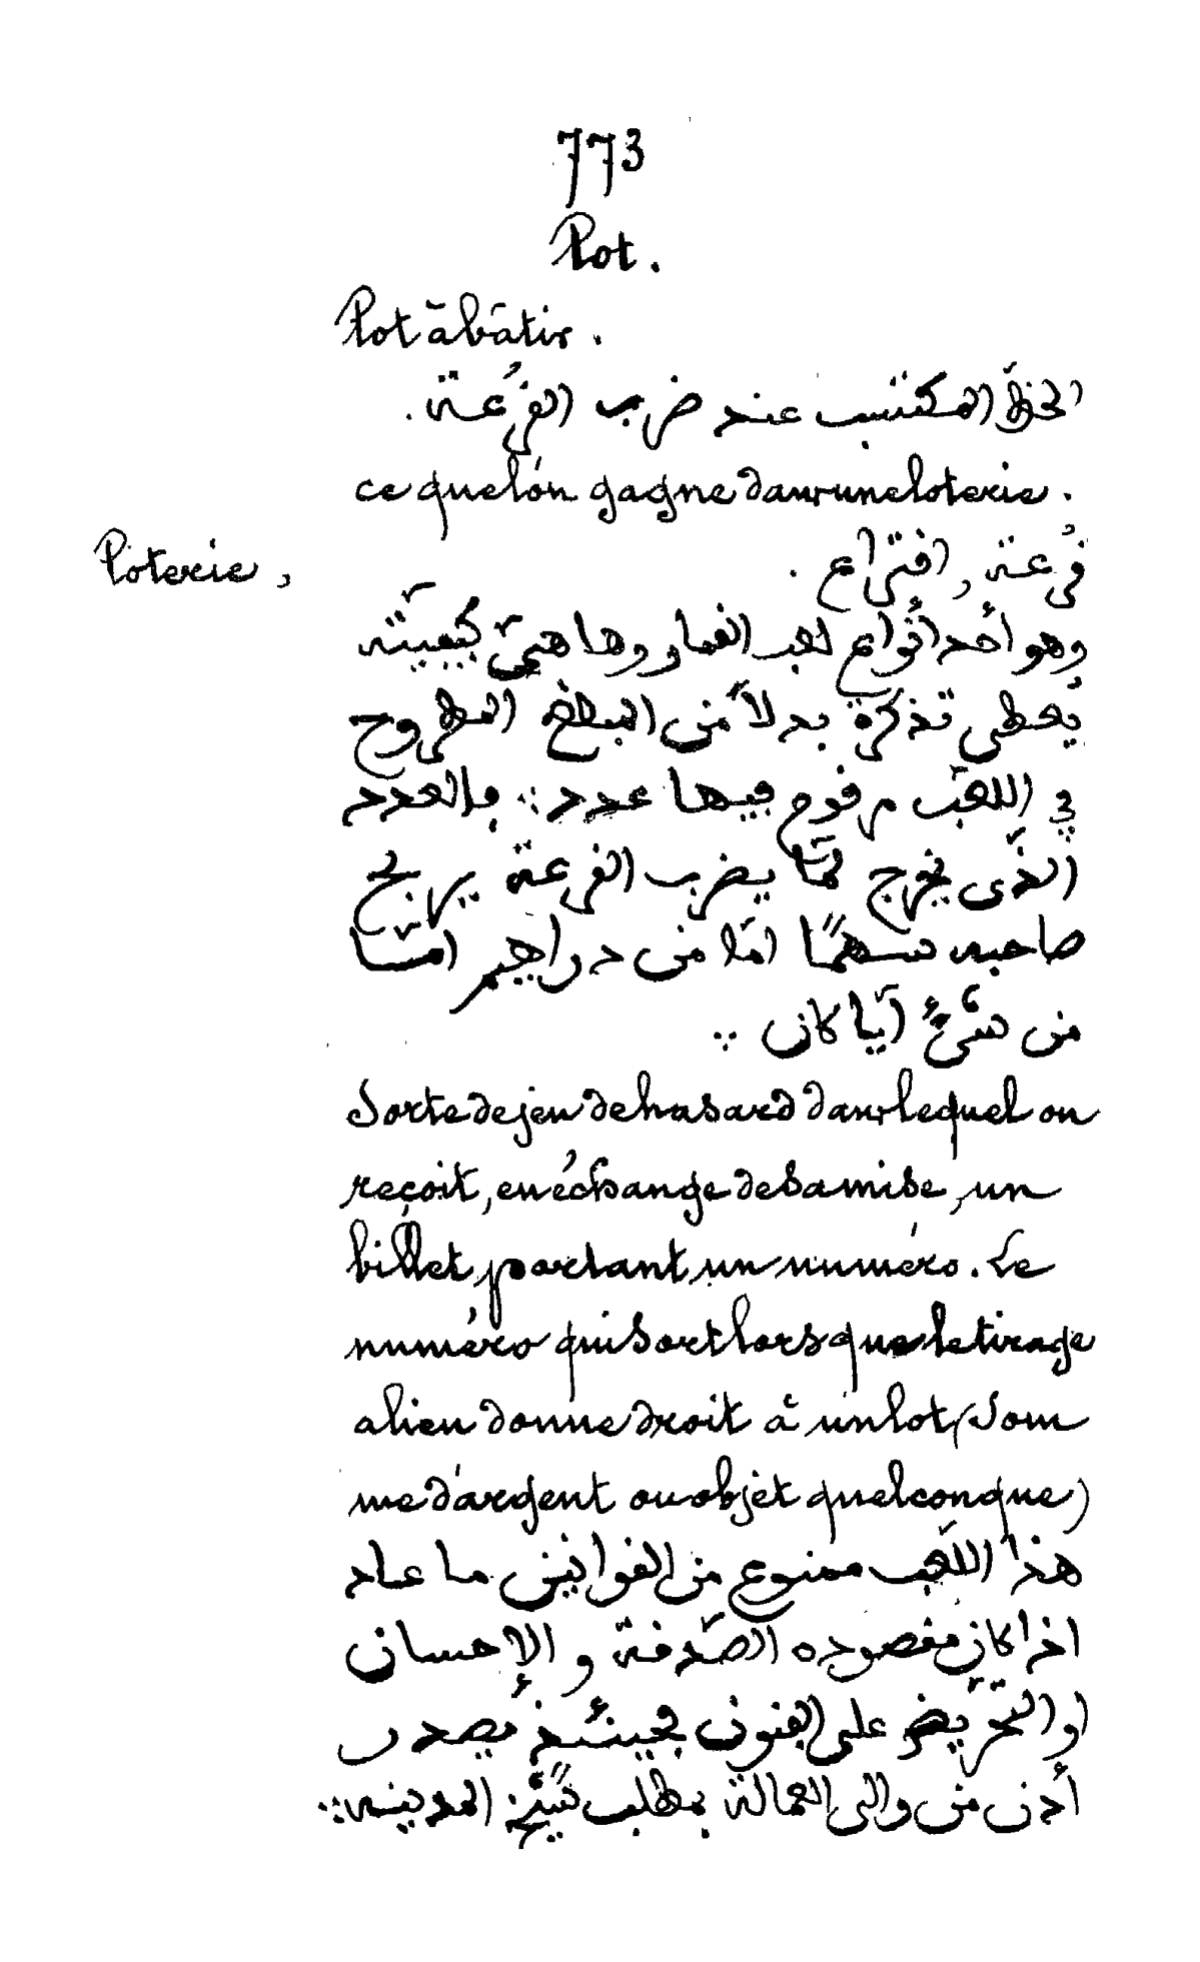 773
Lot.
Lot à bâtir.
الحظّ المكتسب عند ضرب القُرعة.
ce que l'on gagne dans une loterie.
Loterie,
قُرعة, اقتراع.
وهو أحد أنواع لعب القمار وها هيّ كيفيّته
يُعطى تذكرة بدلاً من المبلغ المطروح
في اللعب مرقوم فيها عدد ∴ فالعدد
الذّى يخرج لمّا يضرب القرعة يربح
صاحبه سهمًا امّا من دراهيم امّا
من شىءٍ أيّا كان ∴
Sorte de jeu de hasard dans lequel on
reçoit, en échange de sa mise, un
billet portant un numéro. Le
numéro qui sort lorsque le tirage
a lieu donne droit à un lot (Som
me d'argent ou objet quelconque)
هذا اللّعب ممنوع من القوانين ما عاد
اذا كان مقصوده الصّدقة و الإحسان
او التّحريض على الفنون فحينئذ يصدر
أذن من والى العمالة بمطلب شيخ المدينه ∴